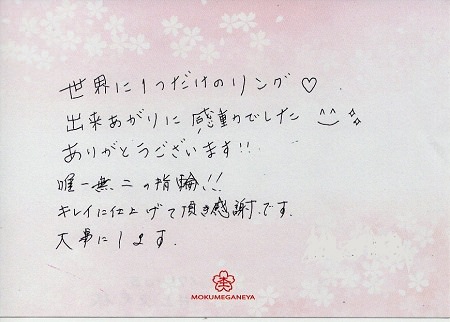 世界に1つだけのリング♡
出来あがりに感動でした ^‿^ ✨
ありがとうございます!!
唯一無二の指輪!!
キレイに仕上げて頂き感謝です.
大事にします.
MOKUMEGANEYA